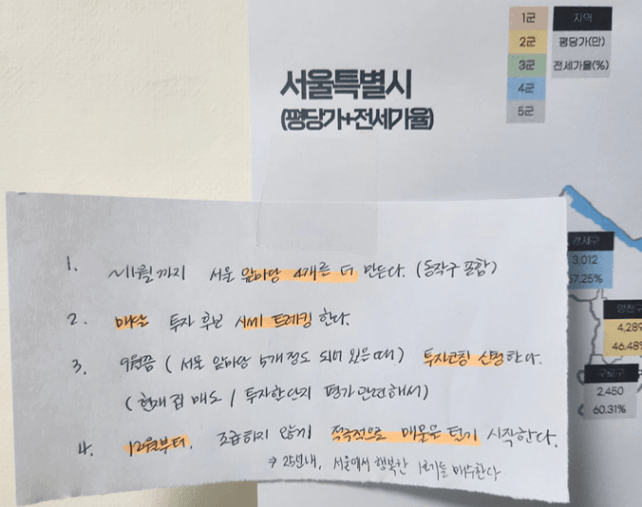 1군 지역
2군 평당가(만)
3군 전세가율(%)
4군
5군
서울특별시
(평당가+전세가율)
강서구
3,012
57.25%
양천구
4,289
46.48%
구로구
2,450
60.31%
1. ~11월까지 서울 앞마당 4개를 더 만든다. (동작구 포함)
2. 매달 투자 후보 시세 트레킹 한다.
3. 9월쯤 (서울 앞마당 5개정도 되어 있을때) 투자코칭 신청한다.
(현재집 매도 / 투자한단지 평가 관련해서)
4. 12월부터. 조급하지 않게 적극적으로 매물을 털기 시작한다.
→ 25년내, 서울에서 행복한 1호기를 매수한다